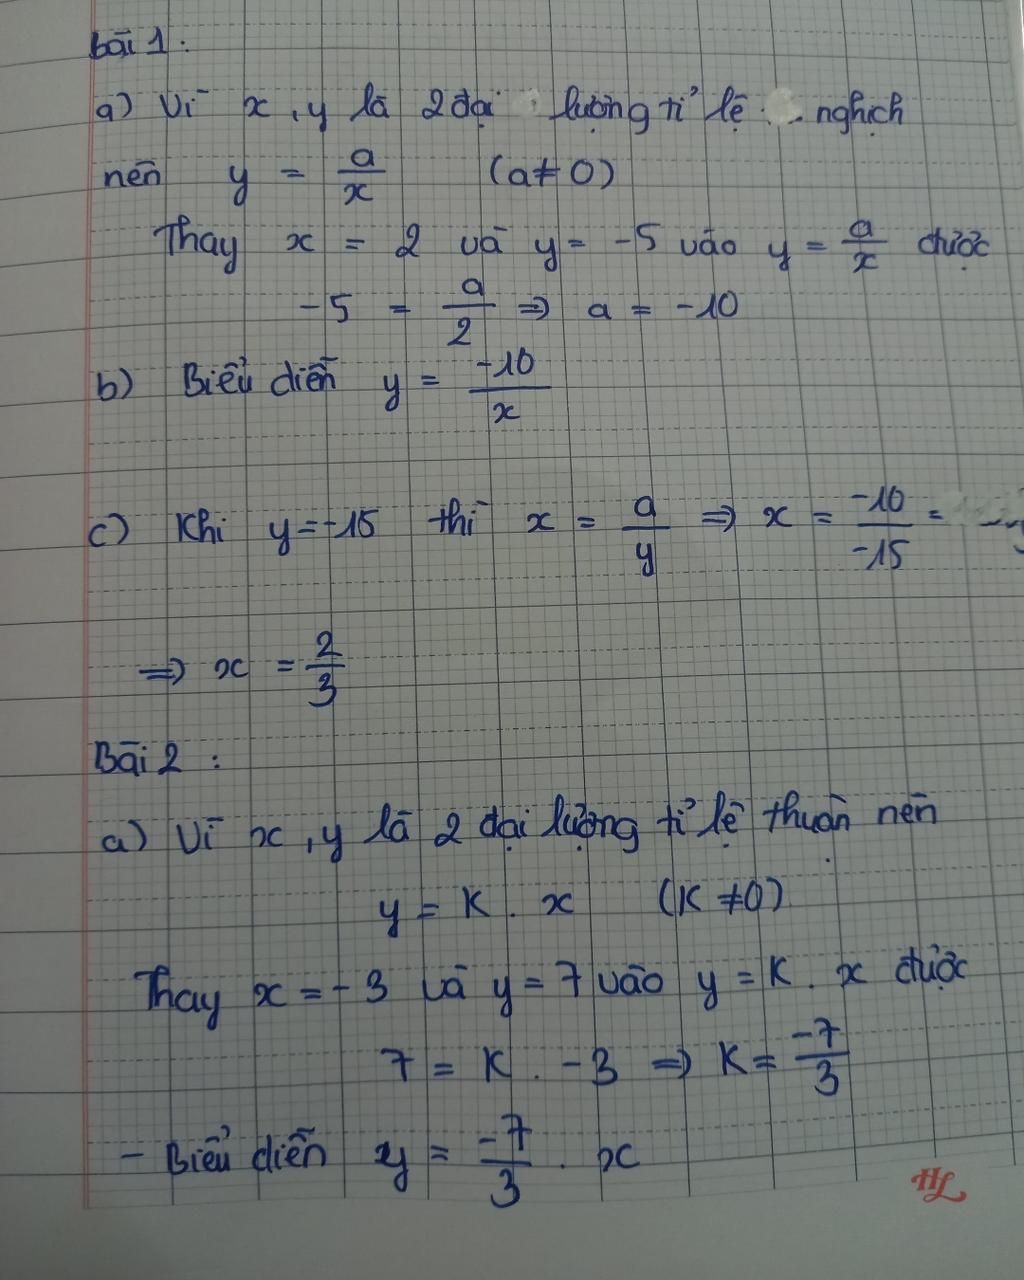 bài 1:
a) Vì x, y là 2 đại lượng tỉ lệ nghịch
nên y = a/x (a ≠ 0)
Thay x = 2 và y = -5 vào y = a/x được
-5 = a/2 => a = -10
b) Biểu diễn y = -10/x
c) Khi y = -15 thì x = a/y => x = -10/-15 =
=> x = 2/3
Bài 2:
a) Vì x, y là 2 đại lượng tỉ lệ thuận nên
y = K . x (K ≠ 0)
Thay x = -3 và y = 7 vào y = K . x được
7 = K . -3 => K = -7/3
- Biểu diễn y = -7/3 . x
HL